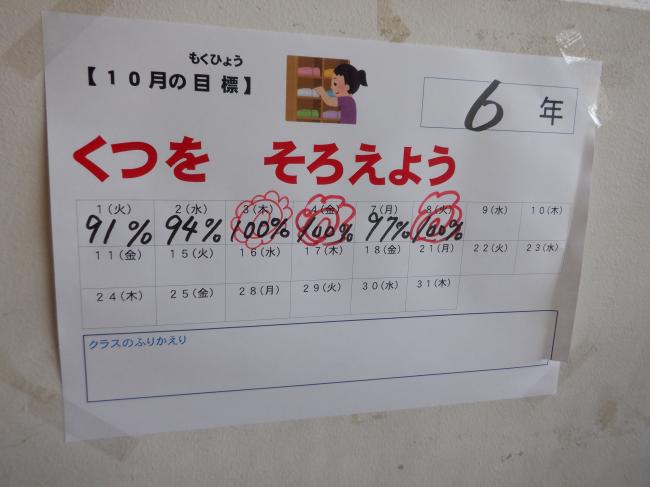 もくひょう
【10月の目標】
6年
くつを そろえよう
1(火) 2(水) 3(木) 4(金) 7(月) 8(火) 9(水) 10(木)
91% 94% 100% 100% 97% 100%
11(金) 15(火) 16(水) 17(木) 18(金) 21(月) 22(火) 23(水)
24(木) 25(金) 28(月) 29(火) 30(水) 31(木)
クラスのふりかえり